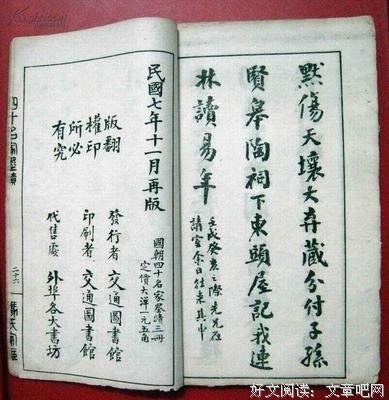 默傷天壤大弃藏分付子孫
賢皋陶祠下東頭屋記我連
林讀易年
壬戌癸亥之際先兄在
請室余日往來其中
民國七年十一月再版
版權所有
翻印必究
國朝四十名家墨蹟三冊
定價大洋一元五角
發行者 交通圖書館
印刷者 交通圖書館
代售處 外埠各大書坊
四十名家墨蹟
二十六
好文阅读：文章吧网